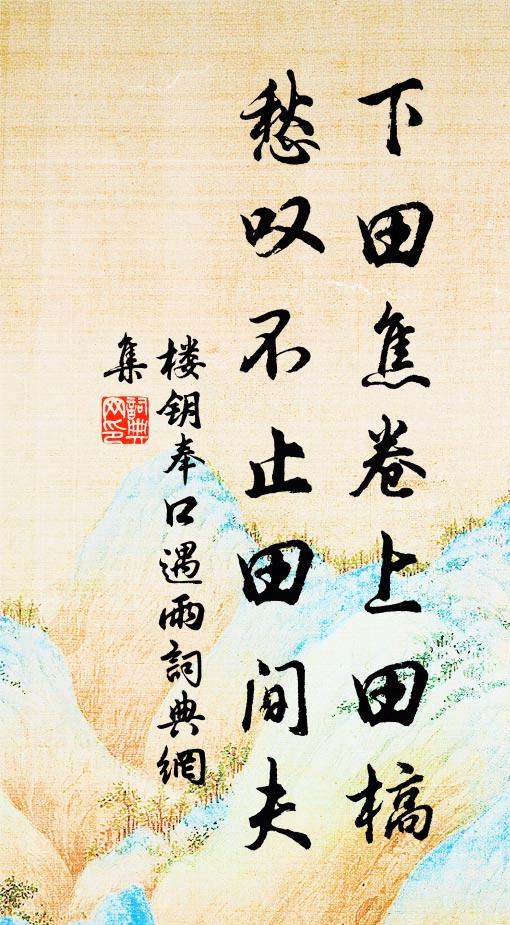 下田焦卷上田槁
愁叹不止田间夫
楼钥奉口遇雨詞典網
集
詞典網印